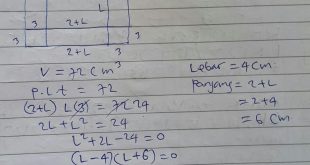 L
2+L
3
3
2+L
3
3
V = 72 cm³
P.L.t = 72
(2+L) L(3) = 72 24
2L + L² = 24
L² + 2L - 24 = 0
(L-4)(L+6) = 0
Lebar = 4 cm
Panjang = 2+L
= 2+4
= 6 cm